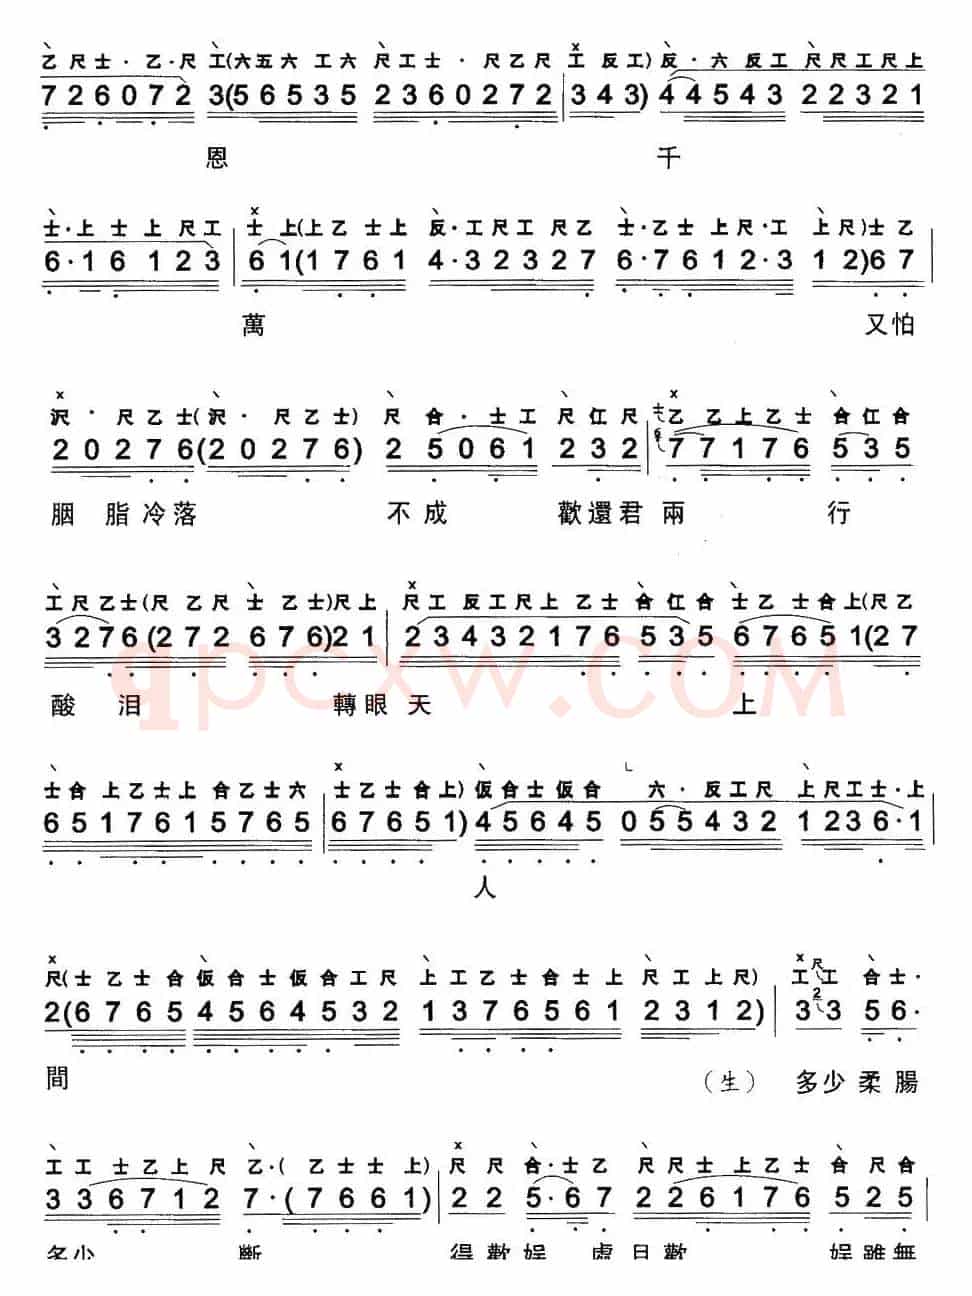 乙尺士·乙·尺工(六五六工六尺工士·尺乙尺工反工)反·六反工尺尺工尺上
726072 3(56535 2360272 343) 44543 22321
恩 千
士·上士上尺工 士上(上乙士上反·工尺工尺乙士·乙士上尺·工上尺)士乙
6·16123 61(1761 4·32327 6·7612·3 12)67
萬 又怕
沢·尺乙士(沢·尺乙士)尺合·士工尺仜尺 士乙乙上乙士合仜合
20276(20276) 25061 232 6 77176 535
胭脂冷落 不成 歡還君兩 行
工尺乙士(尺乙尺士乙士)尺上 尺工反工尺上乙士合仜合士乙士合上(尺乙
3276(272676)21 23432176 535 6765 1(27
酸淚 轉眼天 上
qpcxw.COM
士合上乙士上合乙士六 士乙士合上)仮合士仮合 六·反工尺 上尺工士·上
6517615765 67651)45645 055432 1236·1
人
尺(士乙士合仮合士仮合工尺 上工乙士合士上尺工上尺) 工尺工合士·
2(6765 4564532 1376561 2312) 3 2 3 56·
間 (生) 多少柔腸
工工士乙上尺乙·(乙士士上) 尺尺合·士乙尺尺士上乙士合尺合
336712 7·(7661) 22 5·67 226176 525
多少 斷 得歡娛 處且歡 娛雖無